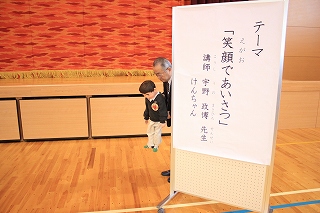 テーマ
「笑顔であいさつ」
講師 宇野 政博 先生
けんちゃん